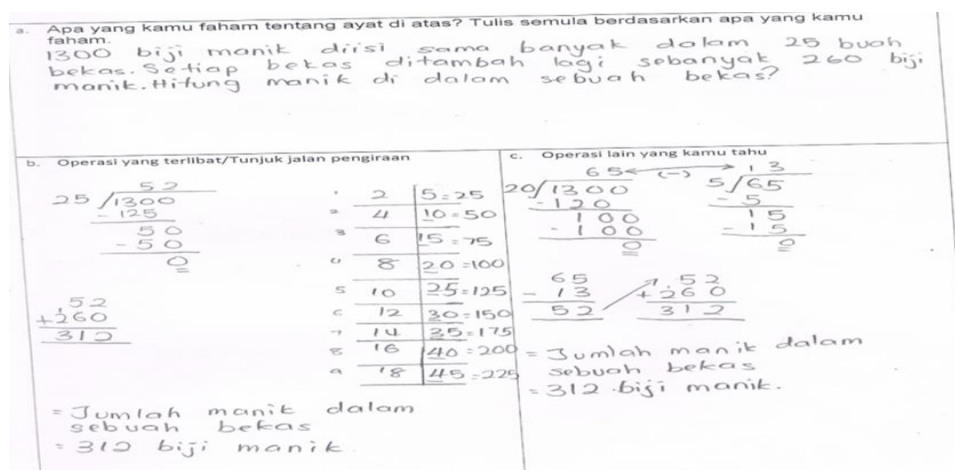 a. Apa yang kamu faham tentang ayat di atas? Tulis semula berdasarkan apa yang kamu
faham.
1300 biji manik diisi sama banyak dalam 25 buah
bekas. Setiap bekas ditambah lagi sebanyak 260 biji
manik. Hitung manik di dalam sebuah bekas?
b. Operasi yang terlibat/Tunjuk jalan pengiraan
52
25 /1300
- 125
50
- 50
0
52
+ 1260
312
1 2 5 = 25
2 4 10 = 50
3 6 15 = 75
4 8 20 = 100
5 10 25 = 125
6 12 30 = 150
7 14 35 = 175
8 16 40 = 200
9 18 45 = 225
= Jumlah manik dalam
sebuah bekas
= 312 biji manik
c. Operasi lain yang kamu tahu
65 ← (-) → 13
20/1300
- 120
100
- 100
0
5/65
- 5
15
- 15
0
65
- 13
52
1 52
+ 260
312
= Jumlah manik dalam
sebuah bekas
= 312 biji manik.